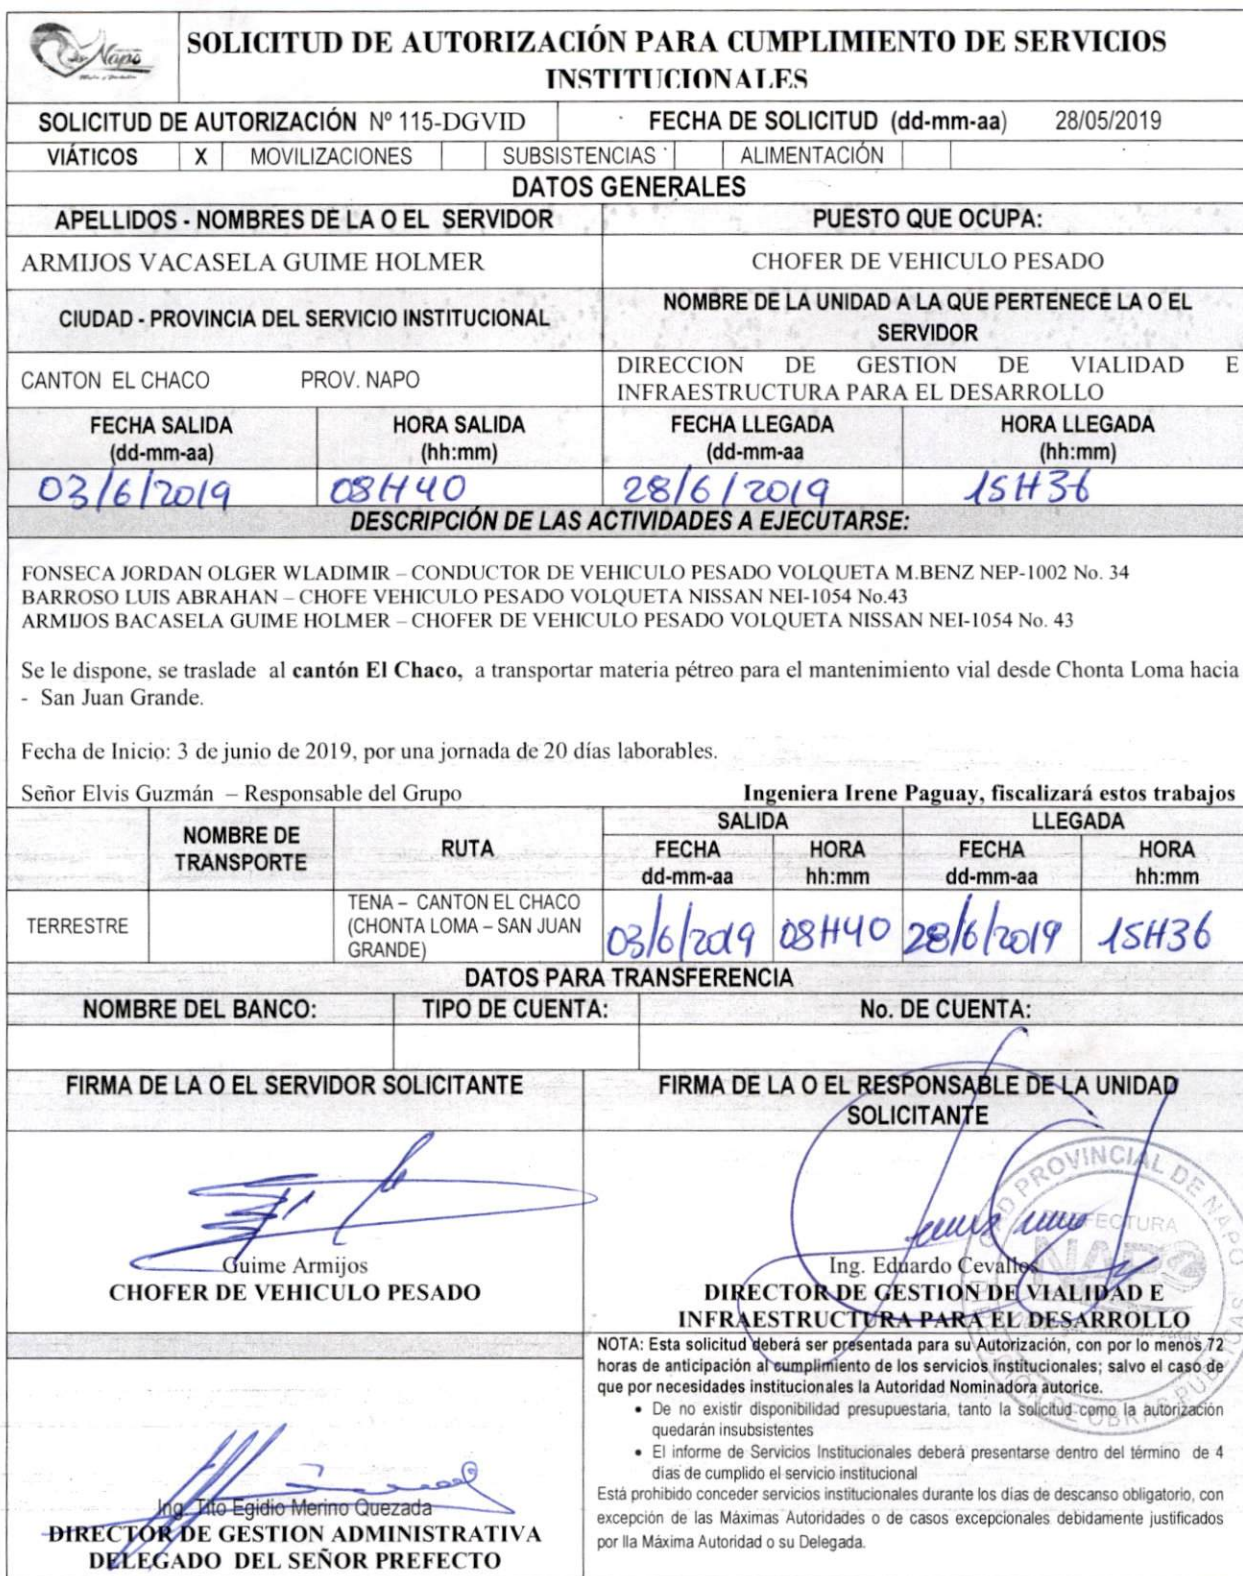 Napo
SOLICITUD DE AUTORIZACIÓN PARA CUMPLIMIENTO DE SERVICIOS
INSTITUCIONALES
SOLICITUD DE AUTORIZACIÓN Nº 115-DGVID FECHA DE SOLICITUD (dd-mm-aa) 28/05/2019
VIÁTICOS X MOVILIZACIONES SUBSISTENCIAS ALIMENTACIÓN
DATOS GENERALES
APELLIDOS - NOMBRES DE LA O EL SERVIDOR PUESTO QUE OCUPA:
ARMIJOS VACASELA GUIME HOLMER CHOFER DE VEHICULO PESADO
CIUDAD - PROVINCIA DEL SERVICIO INSTITUCIONAL
NOMBRE DE LA UNIDAD A LA QUE PERTENECE LA O EL
SERVIDOR
CANTON EL CHACO PROV. NAPO
DIRECCION DE GESTION DE VIALIDAD E
INFRAESTRUCTURA PARA EL DESARROLLO
FECHA SALIDA HORA SALIDA FECHA LLEGADA HORA LLEGADA
(dd-mm-aa) (hh:mm) (dd-mm-aa (hh:mm)
03/6/2019 08H40 28/6/2019 15H36
DESCRIPCIÓN DE LAS ACTIVIDADES A EJECUTARSE:
FONSECA JORDAN OLGER WLADIMIR – CONDUCTOR DE VEHICULO PESADO VOLQUETA M.BENZ NEP-1002 No. 34
BARROSO LUIS ABRAHAN – CHOFE VEHICULO PESADO VOLQUETA NISSAN NEI-1054 No.43
ARMIJOS BACASELA GUIME HOLMER – CHOFER DE VEHICULO PESADO VOLQUETA NISSAN NEI-1054 No. 43
Se le dispone, se traslade al cantón El Chaco, a transportar materia pétreo para el mantenimiento vial desde Chonta Loma hacia
- San Juan Grande.
Fecha de Inicio: 3 de junio de 2019, por una jornada de 20 días laborables.
Señor Elvis Guzmán – Responsable del Grupo Ingeniera Irene Paguay, fiscalizará estos trabajos
SALIDA LLEGADA
NOMBRE DE
TRANSPORTE
RUTA
FECHA HORA FECHA HORA
dd-mm-aa hh:mm dd-mm-aa hh:mm
TERRESTRE
TENA – CANTON EL CHACO
(CHONTA LOMA – SAN JUAN
GRANDE)
03/6/2019 08H40 28/6/2019 15H36
DATOS PARA TRANSFERENCIA
NOMBRE DEL BANCO: TIPO DE CUENTA: No. DE CUENTA:
FIRMA DE LA O EL SERVIDOR SOLICITANTE
FIRMA DE LA O EL RESPONSABLE DE LA UNIDAD
SOLICITANTE
Guime Armijos
CHOFER DE VEHICULO PESADO
PROVINCIAL DE NAPO
NAPO
Ing. Eduardo Cevallos
DIRECTOR DE GESTION DE VIALIDAD E
INFRAESTRUCTURA PARA EL DESARROLLO
NOTA: Esta solicitud deberá ser presentada para su Autorización, con por lo menos 72
horas de anticipación al cumplimiento de los servicios institucionales; salvo el caso de
que por necesidades institucionales la Autoridad Nominadora autorice.
• De no existir disponibilidad presupuestaria, tanto la solicitud como la autorización
quedarán insubsistentes
• El informe de Servicios Institucionales deberá presentarse dentro del término de 4
días de cumplido el servicio institucional
Está prohibido conceder servicios institucionales durante los días de descanso obligatorio, con
excepción de las Máximas Autoridades o de casos excepcionales debidamente justificados
por lla Máxima Autoridad o su Delegada.
Ing. Tito Egidio Merino Quezada
DIRECTOR DE GESTION ADMINISTRATIVA
DELEGADO DEL SEÑOR PREFECTO